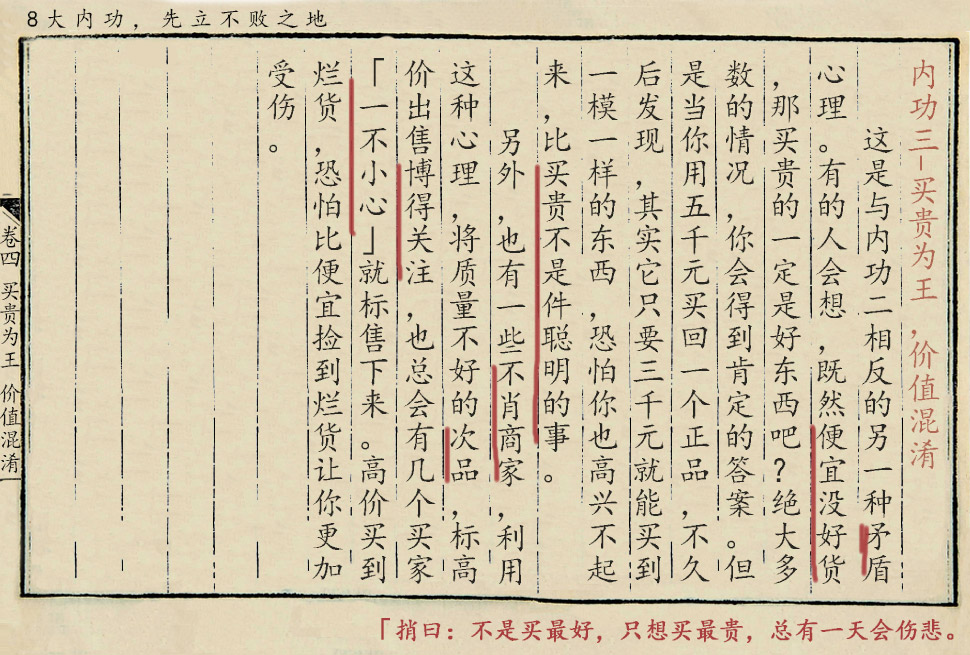 8大内功，先立不败之地
内功三－买贵为王，价值混淆
这是与内功二相反的另一种矛盾
心理。有的人会想，既然便宜没好货
，那买贵的一定是好东西吧？绝大多
数的情况，你会得到肯定的答案。但
是当你用五千元买回一个正品，不久
后发现，其实它只要三千元就能买到
一模一样的东西，恐怕你也高兴不起
来，比买贵不是件聪明的事。
另外，也有一些不肖商家，利用
这种心理，将质量不好的次品，标高
价出售博得关注，也总会有几个买家
「一不小心」就标售下来。高价买到
烂货，恐怕比便宜捡到烂货让你更加
受伤。
卷四 买贵为王 价值混淆
「捎曰：不是买最好，只想买最贵，总有一天会伤悲。